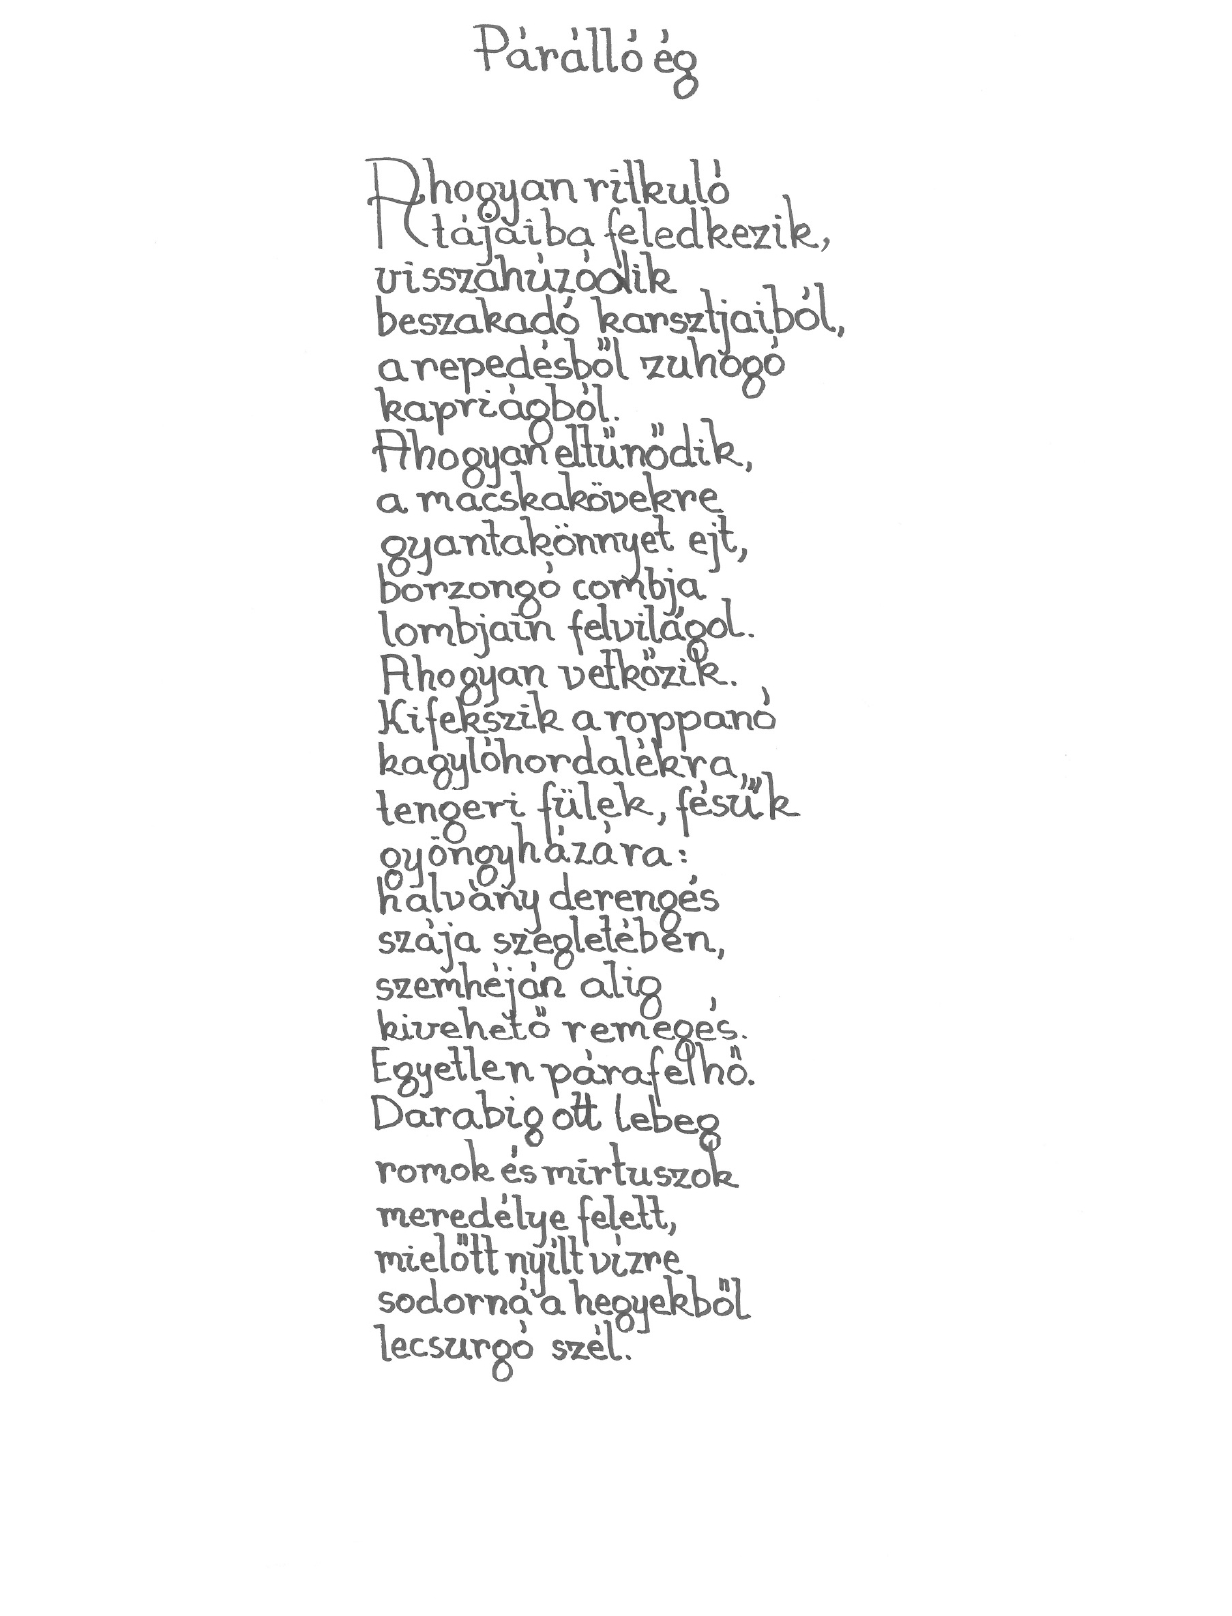 Párálló ég
Ahogyan ritkuló
tájaiba feledkezik,
visszahúzódik
beszakadó karsztjaiból,
a repedésből zuhogó
kapriágból.
Ahogyan eltűnődik,
a macskakövekre
gyantakönnyet ejt,
borzongó combja
lombjain felvilágol.
Ahogyan vetkőzik.
Kifekszik a roppanó
kagylóhordalékra,
tengeri fülek, fésűk
gyöngyházára:
halvány derengés
szája szegletében,
szemhéján alig
kivehető remegés.
Egyetlen párafelhő.
Darabig ott lebeg
romok és mirtuszok
meredélye felett,
mielőtt nyílt vízre
sodorná a hegyekből
lecsurgó szél.